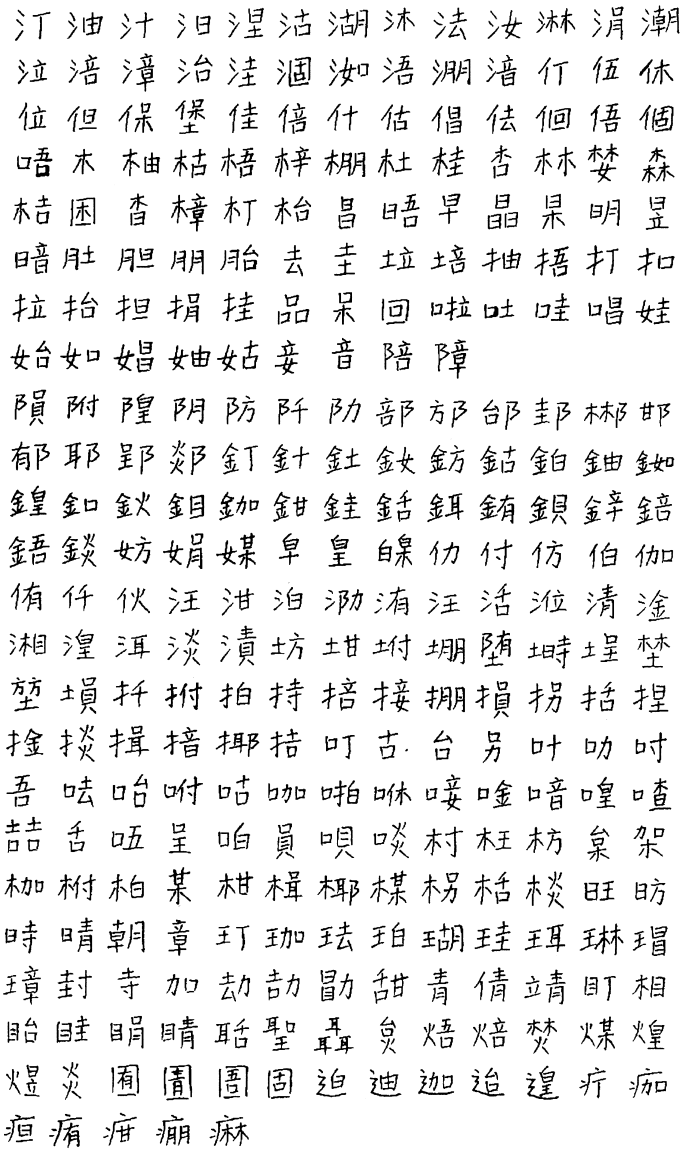 汀油汁汨涅沽湖沐法汝淋涓潮
泣涪漳治洼涸洳浯淜湆仃伍休
位但保堡佳倍什估倡佉佪俉個
唔木柚枯梧梓棚杜桂杏林婪森
桔困杳樟朾枱昌晤早晶杲明昱
暗肚胆朋胎去圭垃培抽捂打扣
拉抬担捐挂品呆回啦吐哇唱娃
始如娼妯姑妾音陪障
隕附隍阴防阡阞部邡邰邽郴邯
郁耶郢郯釘針釷釹鈁鈷鉑鈾銣
鍠釦鈥鉬鉫鉗銈銛鉺銪鋇鋅錇
鋙錟妨娟媒皁皇皞仂付仿伯伽
侑仟伙汪泔泊泐洧汪活涖清淦
湘湟洱淡漬坊坩坿堋堕塒埕埜
堃塤扦拊拍持掊接掤損拐括捏
捦掞揖揞揶拮叮古台另叶叻吋
吾呿咍咐咕咖啪咻唼唫喑喤喳
喆舌吾呈咱員唄啖村枉枋枲架
枷柎柏某柑楫椰楳枴栝棪旺昉
時晴朝章玎珈珐珀瑚珪珥琳瑁
璋封寺加劫劼勖甜青倩靖盯相
眙眭睊睛聒聖聶炱焐焙焚煤煌
煜炎囿圊圄固迫迪迦迨遑疔痂
疸痏疳痭痳